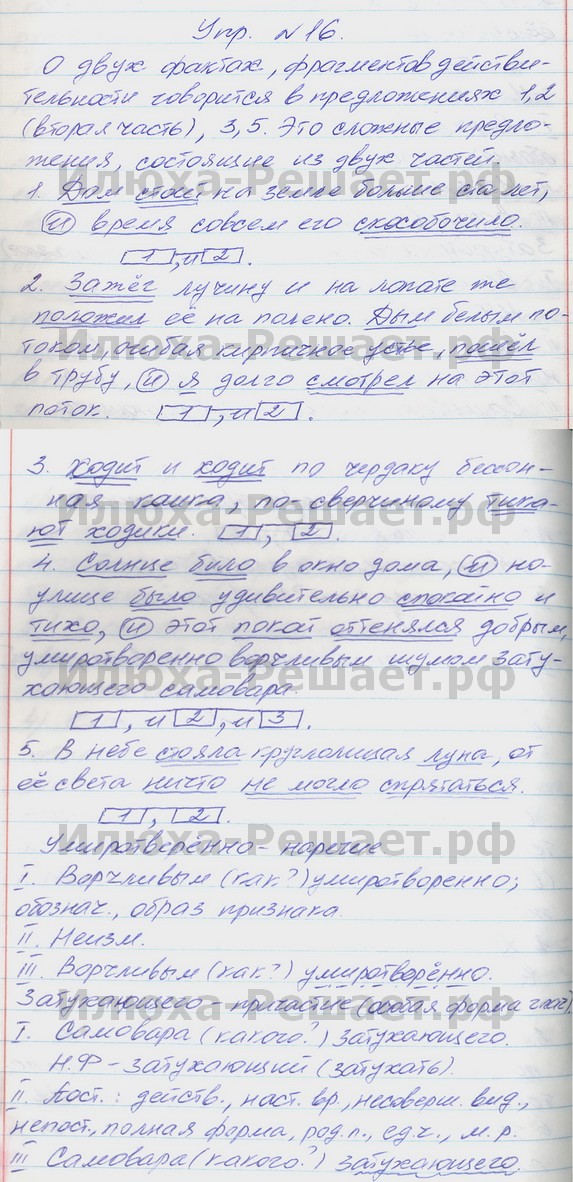 Упр. №16.
О двух фактах, фрагментов действи-
тельности говорится в предложениях 1,2
(вторая часть), 3,5. Это сложные предло-
жения, состоящие из двух частей.
1. Дом стоит на земле больше ста лет,
и время совсем его скособочило.
1 , и 2 .
2. Зажёг лучину и на лопате же
положил её на полено. Дым белым по-
током, огибая кирпичное устье, пошёл
в трубу, и я долго смотрел на этот
поток. 1 , и 2 .
3. Ходит и ходит по чердаку бессон-
ная кошка, по-сверчиному тика-
ют ходики. 1 , 2 .
4. Солнце било в окно дома, и на
улице было удивительно спокойно и
тихо, и этот покой оттенялся добрым,
умиротворенно ворчливым шумом зату-
хающего самовара.
1 , и 2 , и 3 .
5. В небе стояла круглолицая луна, от
её света ничто не могло спрятаться.
1 , 2 .
Умиротворённо - наречие
I. Ворчливым (как?) умиротворенно;
обознач., образ признака.
II. Неизм.
III. Ворчливым (как?) умиротворённо.
Затухающего - причастие (особая форма глаг).
I. Самовара (какого?) затухающего.
Н.Ф - затухающий (затухать).
II Пост.: действ., наст. вр., несоверш. вид.,
непост., полная форма, род.п., ед.ч., м.р.
III Самовара (какого?) затухающего.
Илюха-Решает.рф
Илюха-Решает.рф
Илюха-Решает.рф
Илюха-Решает.рф
Илюха-Решает.рф